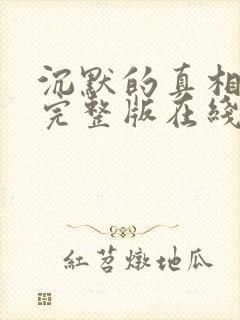 沉默的真相
完整版在綫
紅苕燉地瓜